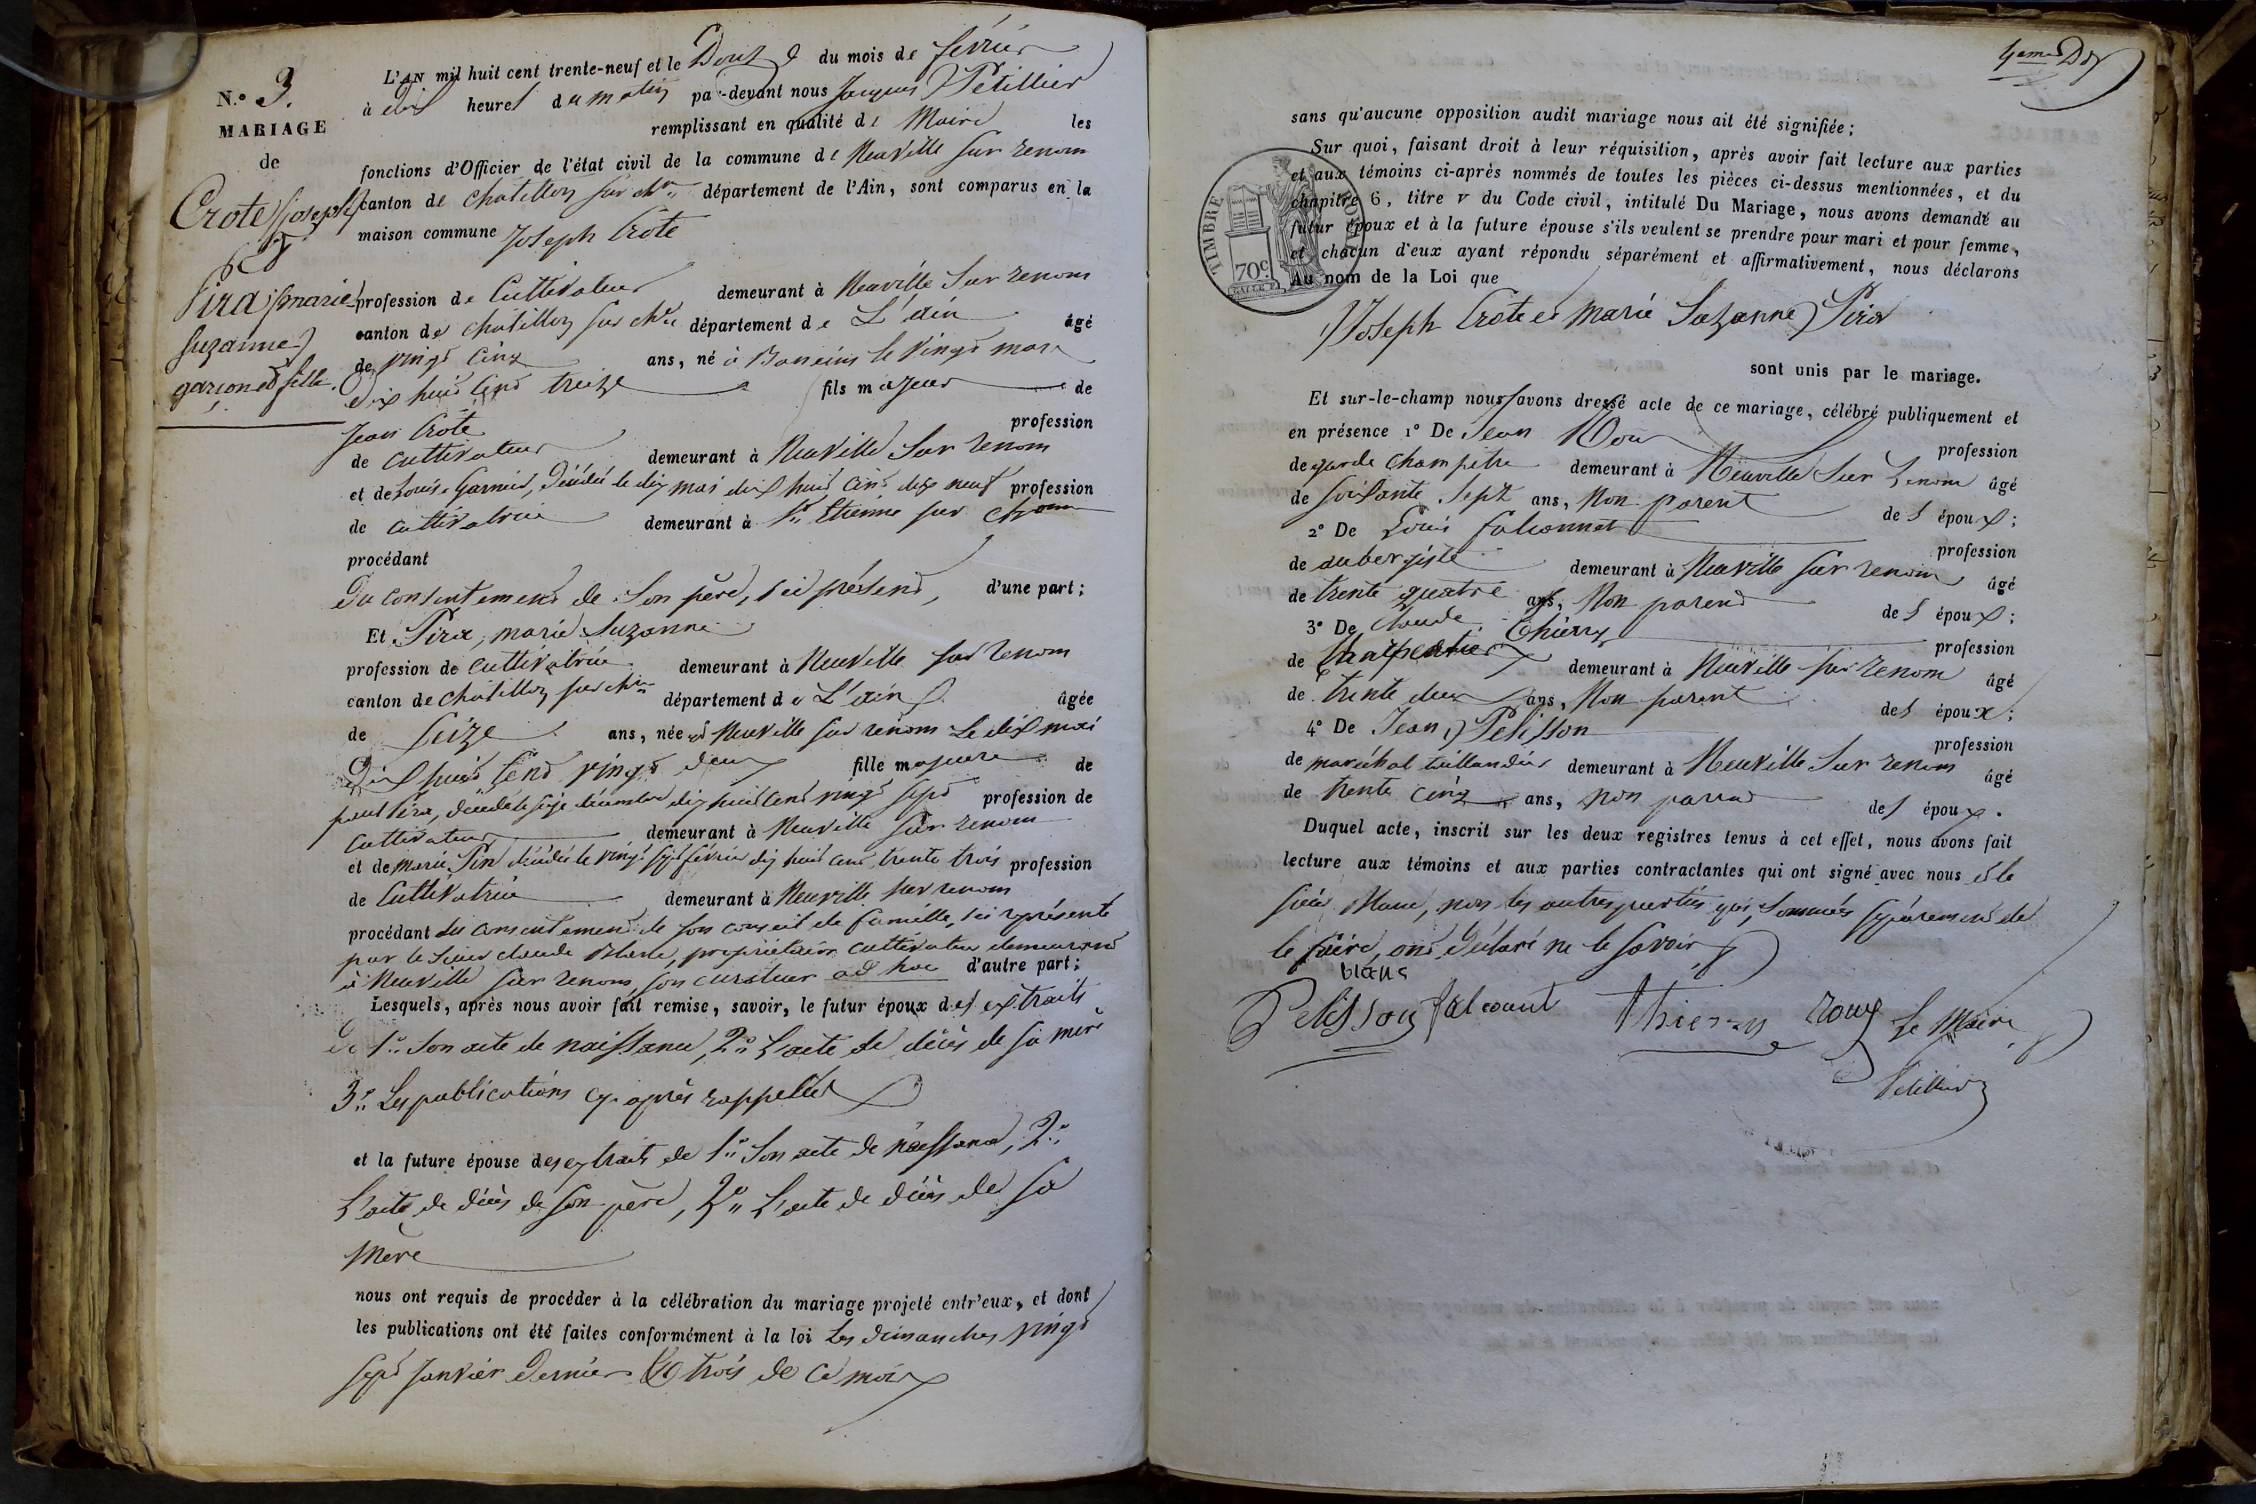 N.º 3.
MARIAGE
de
Crote Joseph
et
Pira marie
suzanne
garçon et fille.
L'AN mil huit cent trente-neuf et le Douze du mois de février
à dix heures du matin par-devant nous Jacques Petillier
remplissant en qualité de Maire les
fonctions d'Officier de l'état civil de la commune de Neuville sur renom
canton de chatillon sur ch.ne département de l'Ain, sont comparus en la
maison commune Joseph Crote
profession de Cultivateur demeurant à Neuville sur renom
canton de chatillon sur ch.ne département de L'ain âgé
de vingt cinq ans, né à Baneins le vingt mars
dix huit cent treize fils majeur de
Jean Crote profession
de cultivateur demeurant à Neuville sur renom
et de Louise Garnier, décédée le dix mai dix huit cent dix neuf profession
de cultivatrice demeurant à St Etienne sur
procédant
du consentement de son père, ici présent, d'une part;
Et Pira, marie Suzanne
profession de cultivatrice demeurant à Neuville sur renom
canton de chatillon sur ch.ne département de L'ain âgée
de seize ans, née à Neuville sur renom le dix mai
dix huit cent vingt deux fille majeure de
paul Pira, décédé le seize décembre dix huit cent vingt sept profession de
cultivateur demeurant à Neuville sur renom
et de marie Pin décédée le vingt sept février dix huit cent trente trois profession
de Cultivatrice demeurant à Neuville sur renom
procédant du consentement de son conseil de famille, ici représenté
par le Sieur claude propriétaire cultivateur demeurant
à Neuville sur renom, son curateur ad hoc d'autre part;
Lesquels, après nous avoir fait remise, savoir, le futur époux des extraits
de 1.º Son acte de naissance, 2.º L'acte de décès de sa mère
3.º Les publications cy-après rappellés
et la future épouse des extraits de 1.º Son acte de naissance, 2.º
L'acte de décès de son père, 3.º L'acte de décès de sa
mère
nous ont requis de procéder à la célébration du mariage projeté entr'eux, et dont
les publications ont été faites conformément à la loi Les dimanches vingt
sept Janvier dernier & trois de ce mois
sans qu'aucune opposition audit mariage nous ait été signifiée;
Sur quoi, faisant droit à leur réquisition, après avoir fait lecture aux parties
et aux témoins ci-après nommés de toutes les pièces ci-dessus mentionnées, et du
chapitre 6, titre v du Code civil, intitulé Du Mariage, nous avons demandé au
futur époux et à la future épouse s'ils veulent se prendre pour mari et pour femme,
et chacun d'eux ayant répondu séparément et affirmativement, nous déclarons
Au nom de la Loi que
TIMBRE ROYAL
70c
Joseph Crote et Marie Suzanne Pira
sont unis par le mariage.
Et sur-le-champ nous avons dressé acte de ce mariage, célébré publiquement et
en présence 1º De Jean Roux profession
de garde champetre demeurant à Neuville sur renom âgé
de soixante sept ans, Non parent des époux;
2º De Louis falconnet profession
de aubergiste demeurant à Neuville sur renom âgé
de trente quatre ans, Non parent des époux;
3º De claude Thierry profession
de Charpentier demeurant à Neuville sur renom âgé
de trente deux ans, Non parent des époux;
4º De Jean Pelisson profession
de maréchal taillandier demeurant à Neuville sur renom âgé
de trente cinq ans, non parent des époux.
Duquel acte, inscrit sur les deux registres tenus à cet effet, nous avons fait
lecture aux témoins et aux parties contractantes qui ont signé avec nous et le
sieur non les autres parties qui, sommées séparément de
le faire, ont déclaré ne le savoir
blanc
Pelisson falconnet Thierry roux Le Maire
Petillier